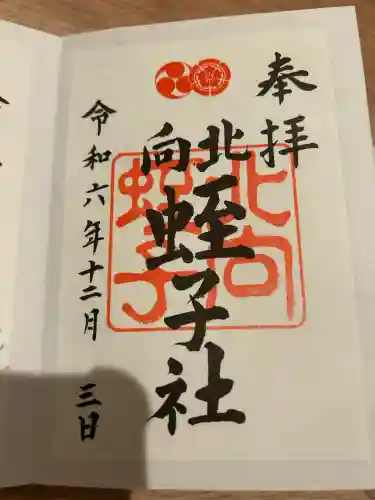 奉拝
北向
蛭子社
北向
蛭子
令和六年十二月 三日